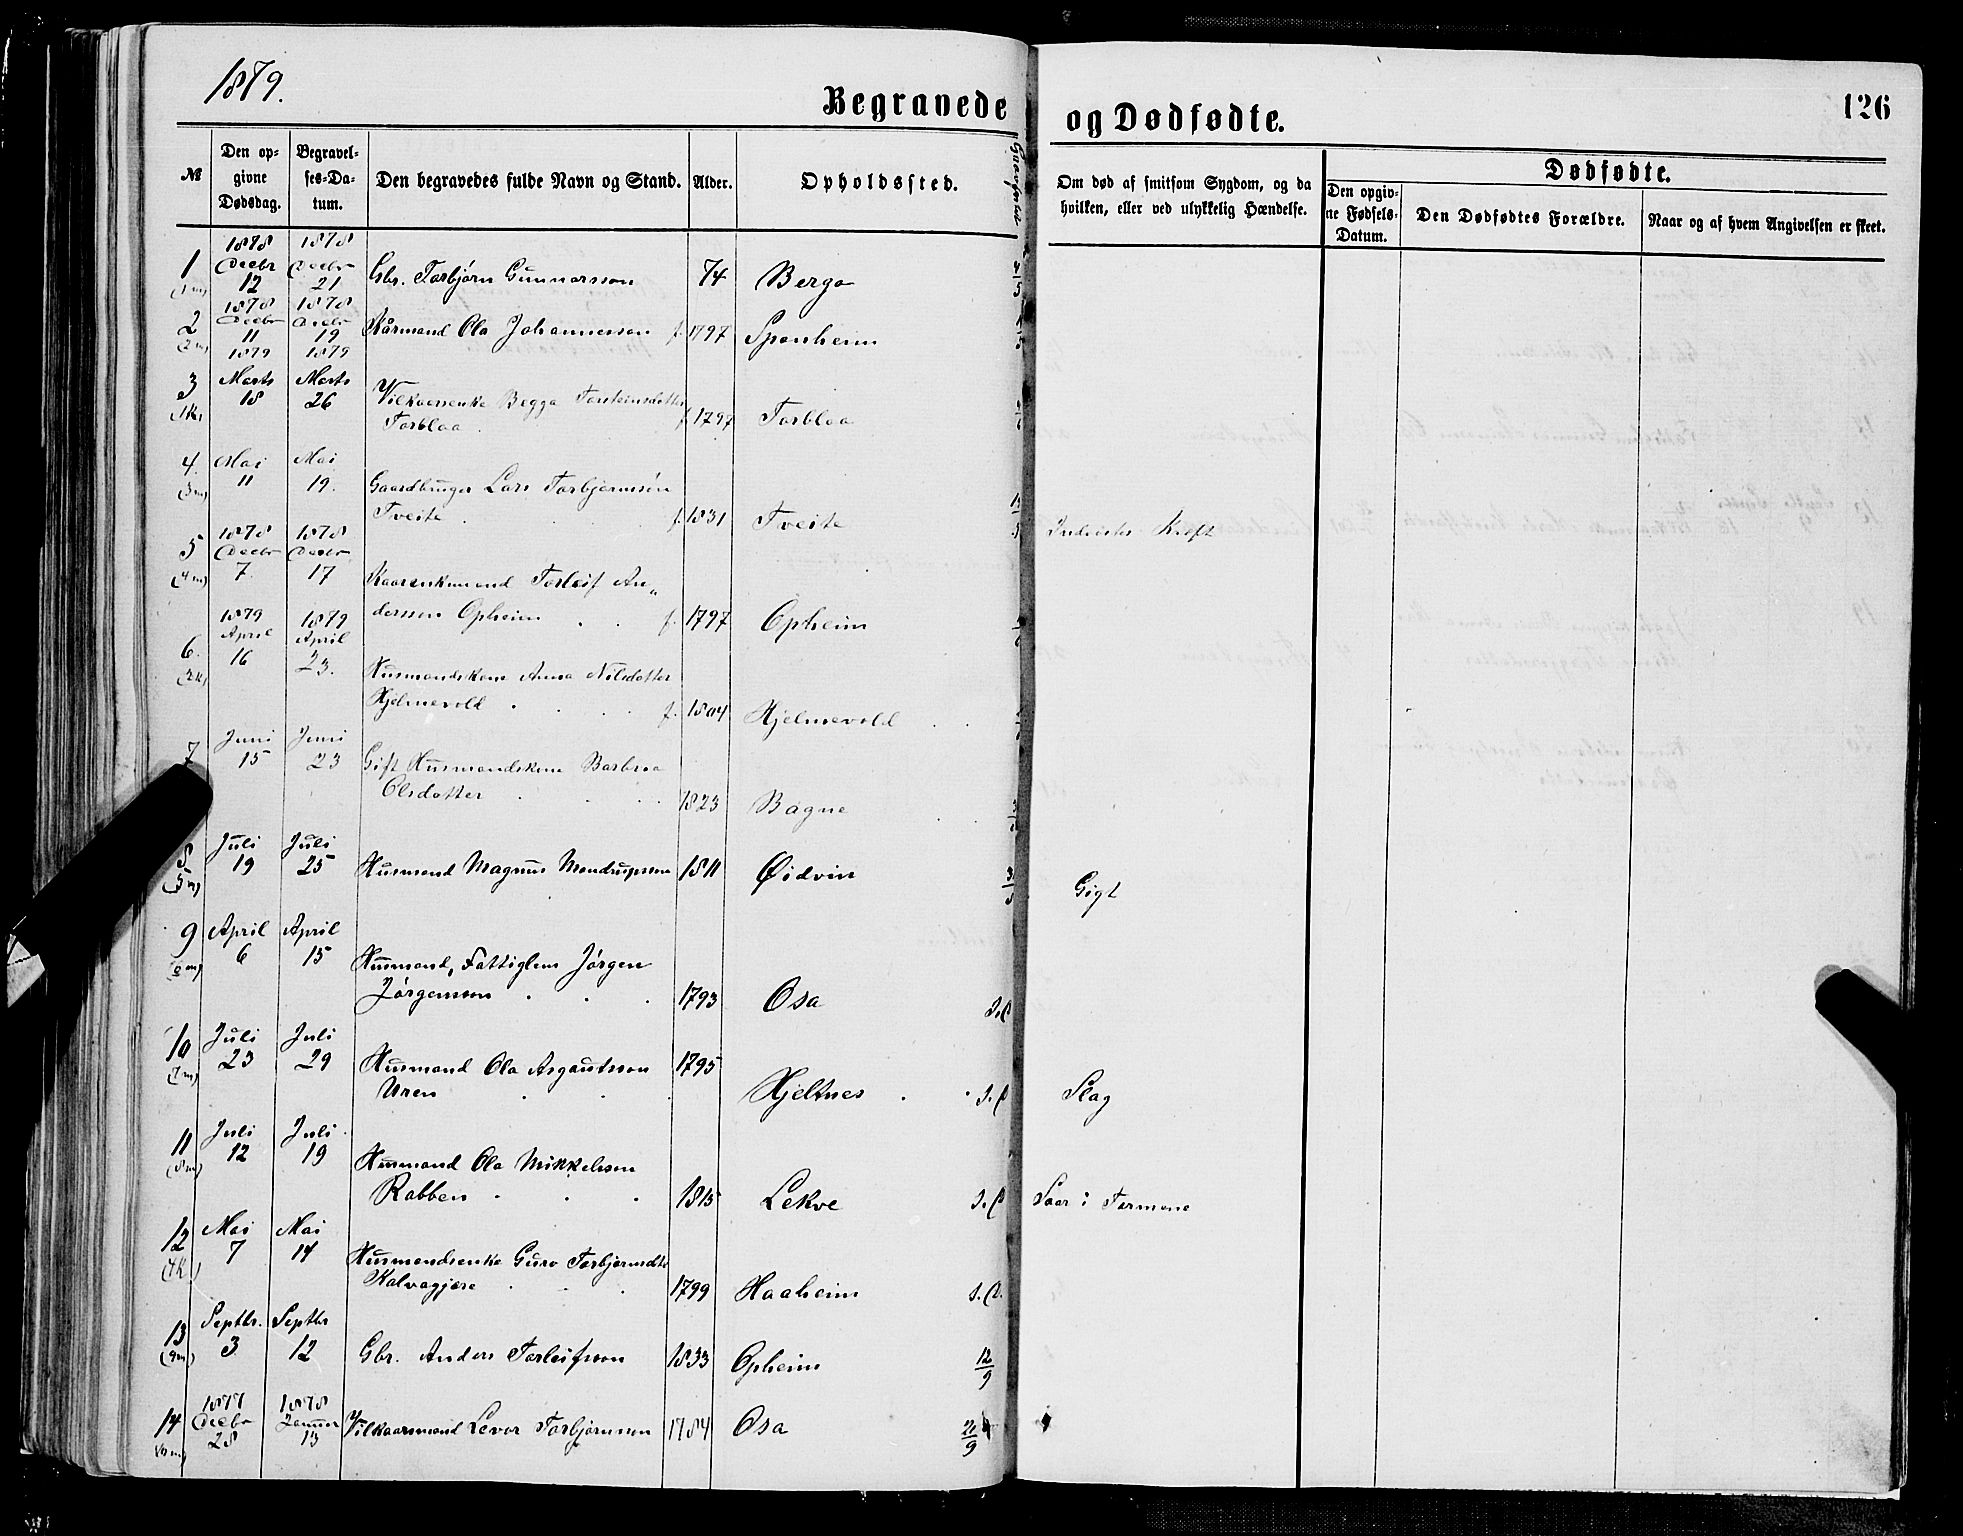 1879.
Begravede
og Dødfødte.
126
№
Den op-
givne
Dødsdag.
Begravel-
ses-Da-
tum.
Den begravedes fulde Navn og Stand.
Alder.
Opholdssted.
Om død af smitsom Sygdom, og da
hvilken, eller ved ulykkelig Hændelse.
Dødfødte.
Den opgiv-
ne Fødsels-
Datum.
Den Dødfødtes Forældre.
Naar og af hvem Angivelsen er skeet.
1 (1m) 1878 Decbr 12 1878 Decbr 21 Gbr. Torbjørn Gunnarsson 74 Berge
2 (2m) 1878 Decbr 11 1878 Decbr 19 Kårmand Ola Johannesson f. 1797 Sponheim
3 (1k) 1879 Marts 18 1879 Marts 26 Vilkaarsenke Begga Torsteinsdotter
Torbloa f. 1797 Torbloa
4. (3m) Mai 11 Mai 19. Gaardbruger Lars Torbjørnssøn
Tveite f. 1831 Tveite Kreft
5 (4m) 1878 Decbr 7 1878 Decbr 17 Kaarenkmand Torleif An„
dersson Opheim f. 1797 Opheim
6. (2k) 1879 April 16 1879 April 23. Husmandskone Anna Nilsdotter
Hjelmevold f. 1804 Hjelmevold
7 Juni 15 Juni 23 Gift Husmandskone Barbroa
Olsdotter 1823 Bagne
8 (5m) Juli 19 Juli 25 Husmand Magnus Mondrupsson 1811 Øidvin Gigt
9 (6m) April 6 April 15 Husmand, Fattiglem Jörgen
Jörgenson 1793 Osa
10 (7m) Juli 23 Juli 29 Husmand Ola Asgautsson 1795
Uren Hjeltnes Slag
11 (8m) Juli 12 Juli 19 Husmand Ola Mikkelsson
Rabben 1815 Lekve Saar i Tarmene
12 (4k) Mai 7 Mai 14 Husmandsenke Guro Torbjørnsdtr
Kalvagjære 1799 Haaheim
13 (9m) Septbr. 3 Septbr 12 Gbr. Anders Torleifsson 1833 Opheim 12/9
14 (10m) 1877 Decbr 28 1878 Januar 13 Vilkaarsmand Levor Torbjørnsson 1784 Osa